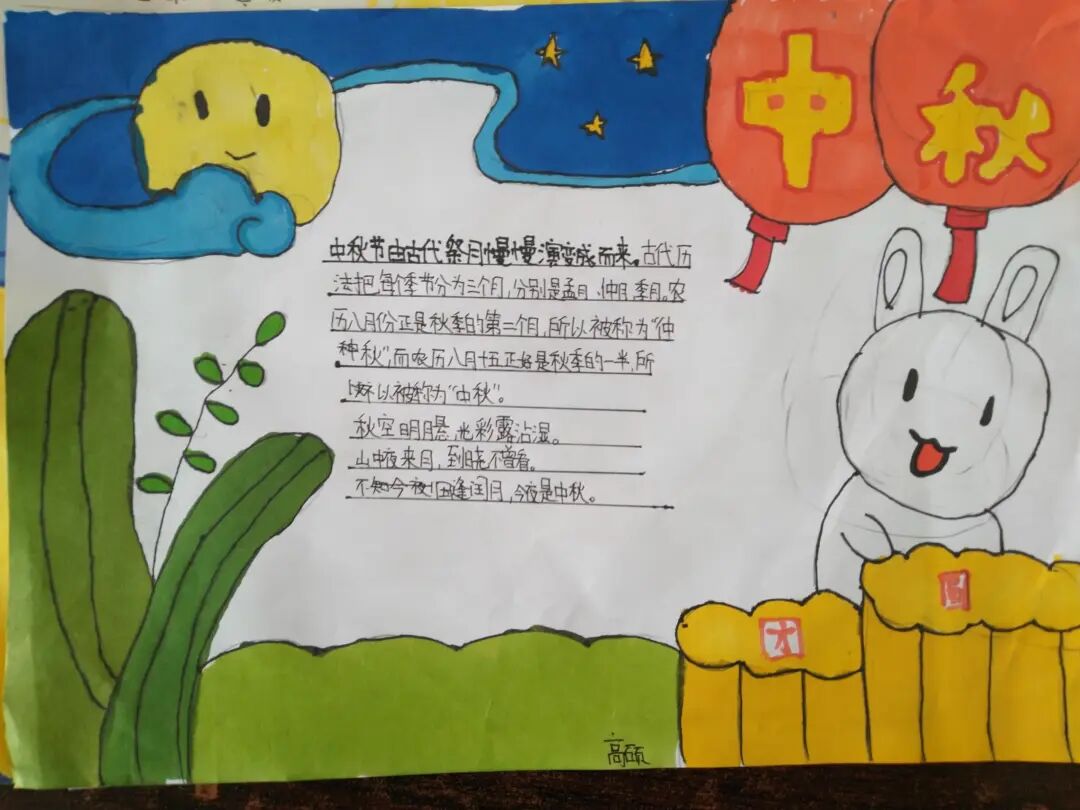 中秋
中秋节由古代祭月慢慢演变成而来。古代历
法把每个季节分为三个月，分别是孟月、仲月、季月。农
历八月份正是秋季的第二个月，所以被称为“仲
种秋”，而农历八月十五正好是秋季的一半，所
以被称为“中秋”。
秋空明月悬，光彩露沾湿。
山中夜来月，到晓不曾看。
不知今夜逢闰月，今夜是中秋。
高硕